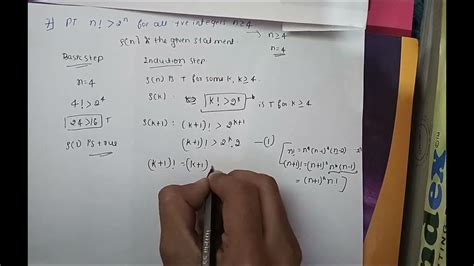 7) PT n! > 2ⁿ for all +ve integers n≥4
→ n≥4
n=4
S(n) is the given statement
Basic step
n=4
4! > 2⁴
24>16 T
Induction step
S(n) is T for some k, k≥4
S(k) : k! > 2ᵏ is T for k≥4
S(k+1) : (k+1)! > 2ᵏ⁺¹
(k+1)! > 2ᵏ.2 —(1)
(k+1)! = (k+1)
n! = n*(n-1)*(n-2)
(n+1)! = (n+1)*n*(n-1)
= (n+1)*n!
ndex